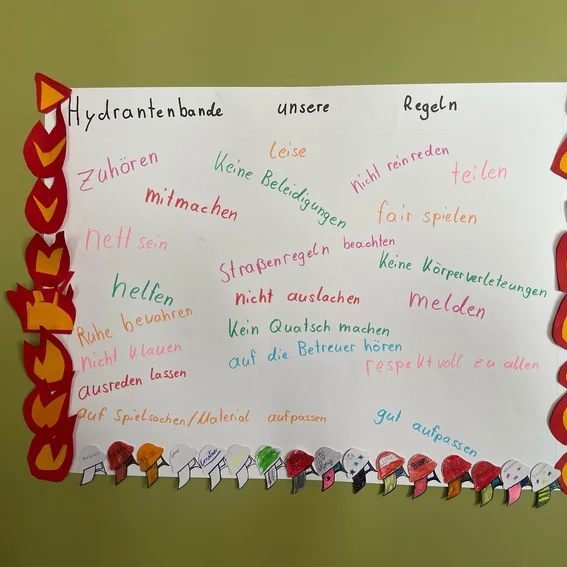 Hydrantenbande unsere Regeln
leise
zuhören
Keine Beleidigungen
nicht reinreden
teilen
mitmachen
fair spielen
nett sein
Straßenregeln beachten
Keine Körperverletzungen
helfen
nicht auslachen
melden
Ruhe bewahren
Kein Quatsch machen
nicht klauen
auf die Betreuer hören
respektvoll zu allen
ausreden lassen
auf Spielsachen/Material aufpassen
gut aufpassen